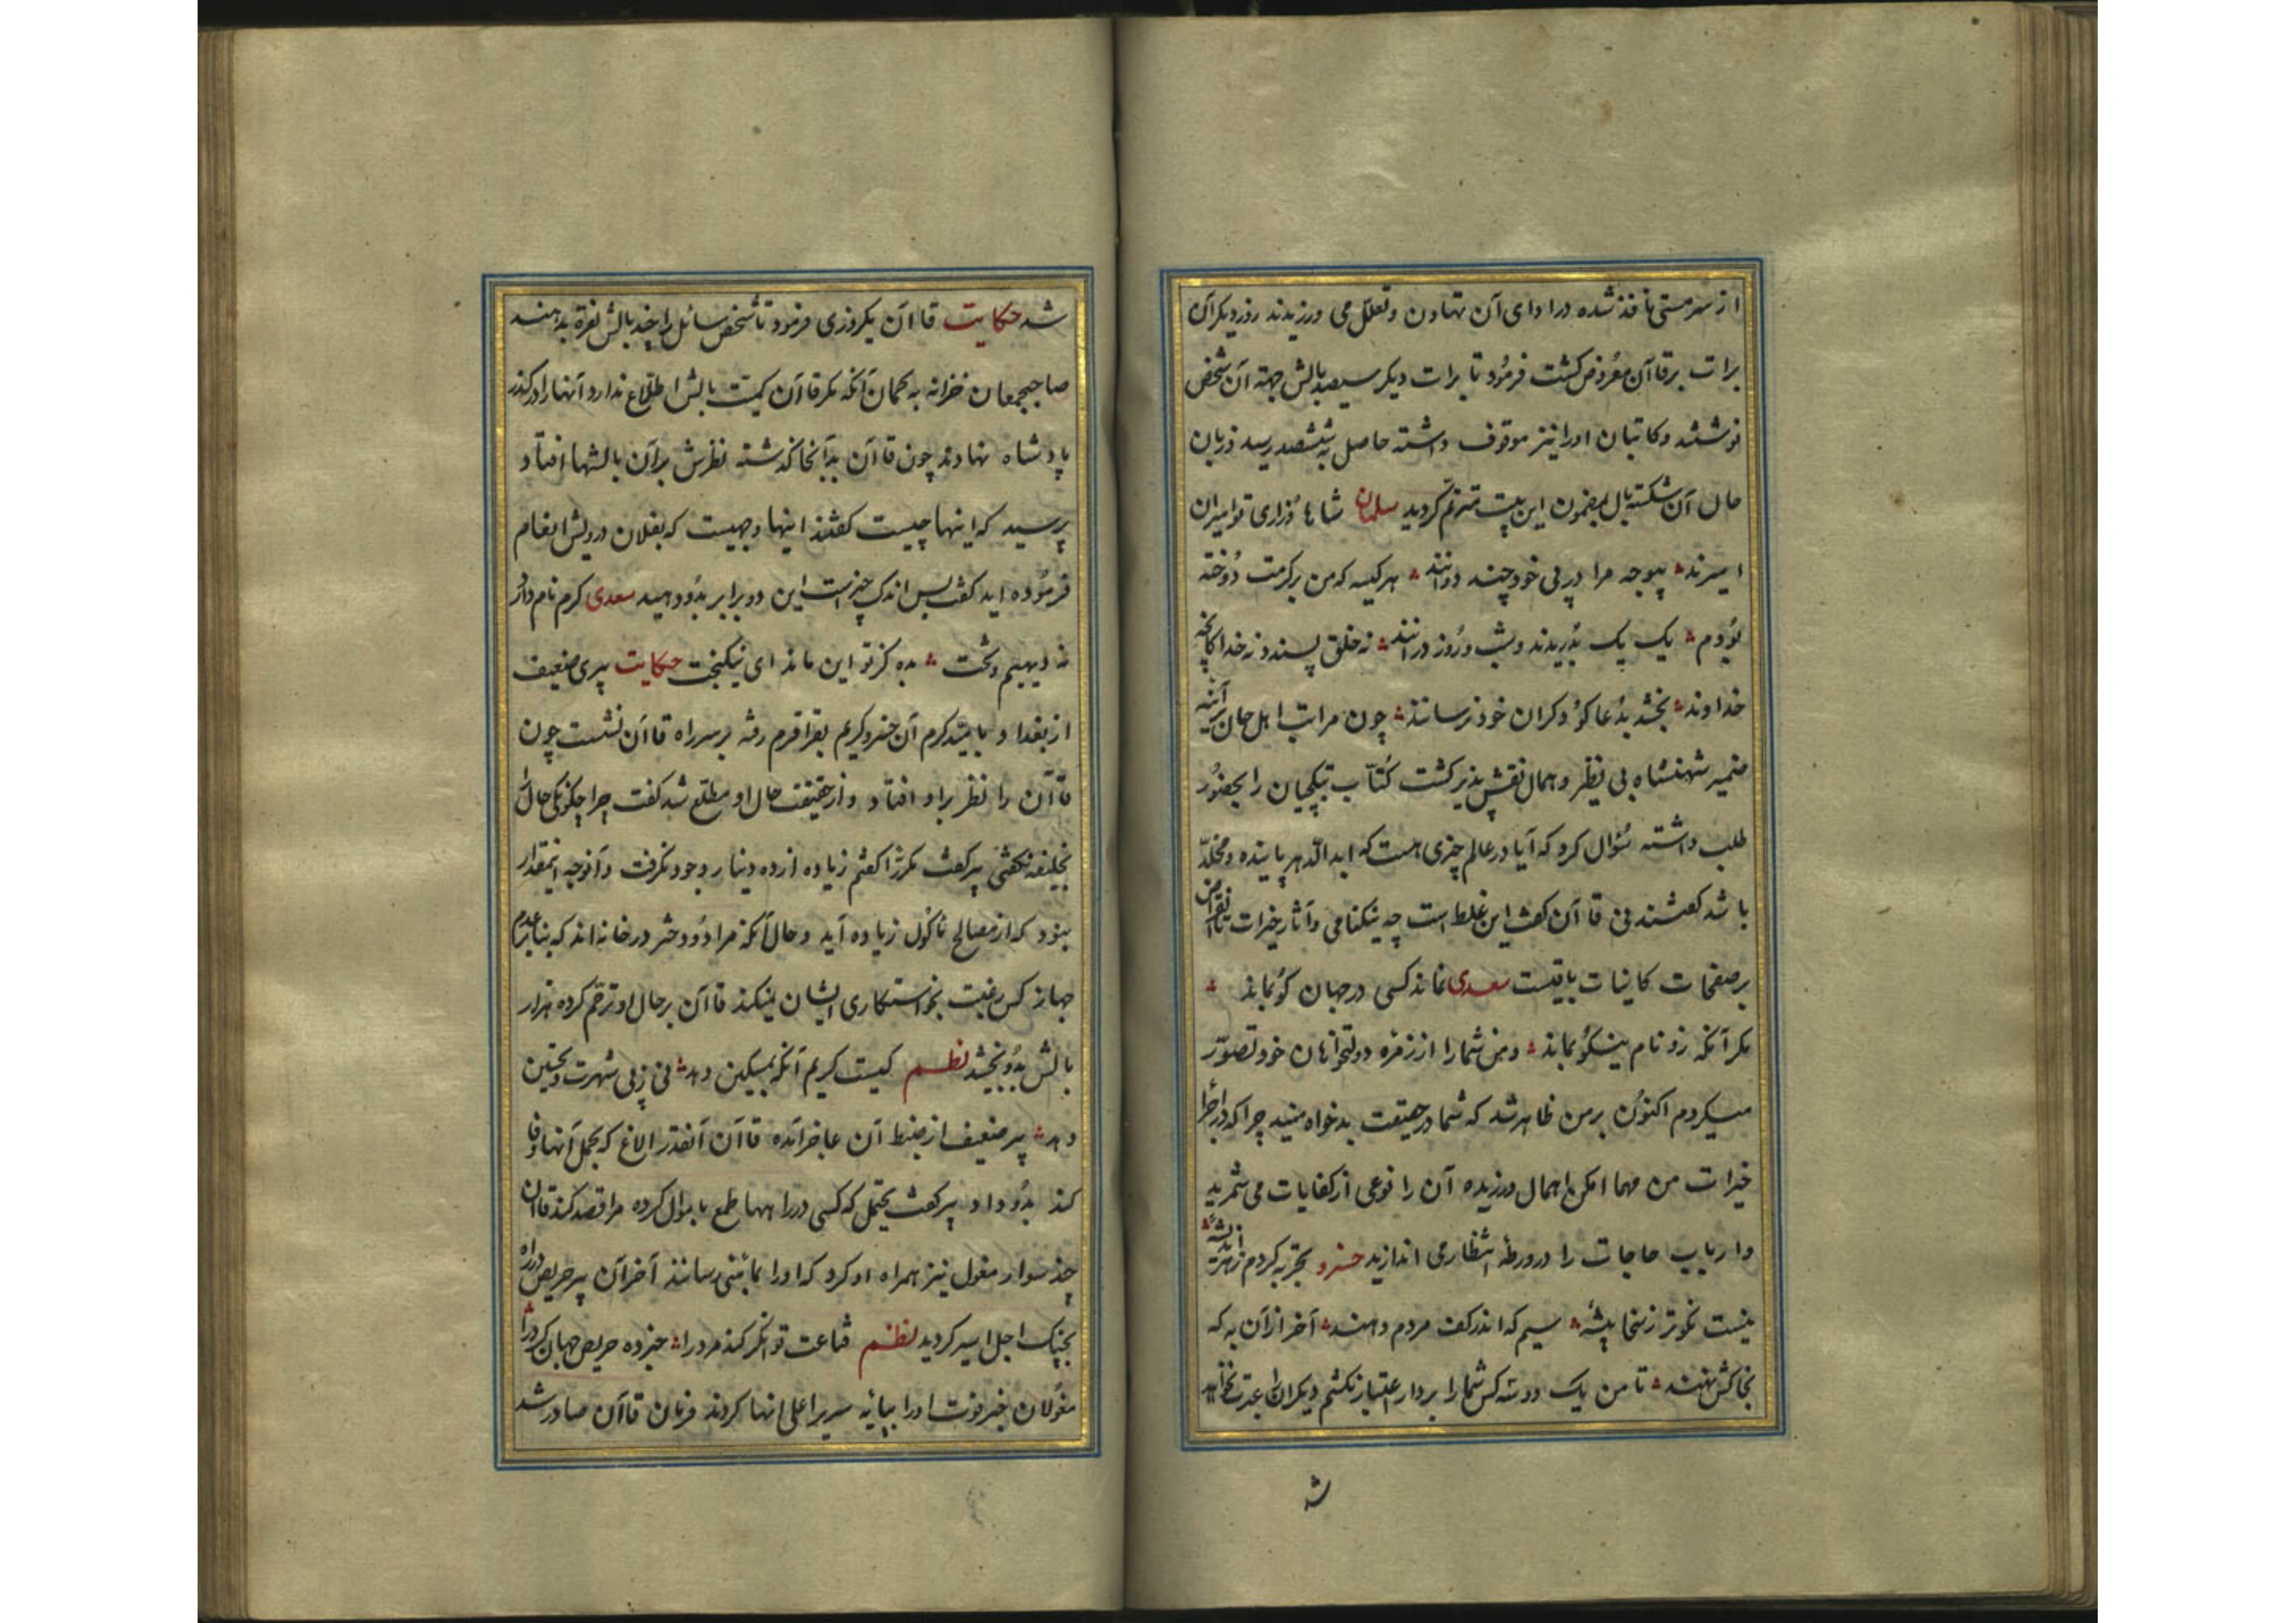 از سر مستی نافذ شده در ادای آن تهاون و تعلل می ورزیدند روز دیگر آن
برات بر قاآن معروض گشت فرمود تا برات دیگر سیصد بالش جهة آن شخص
نوشتند و کاتبان او را نیز موقوف داشته حاصل به ششصد رسید زبان
حال آن شکسته بال بمضمون این بیت مترنم گردید سلمان شاها وزرای تو امیران
اسیرند بیوجه مرا در پی خود چند دوانند هر کیسه که من بر کرمت دوخته
بودم یک یک بدریدند و شب و روز درانند نه خلق پسندد نه خدا کانچه
خداوند بخشد بدعاگو دکران خود نرسانند چون مراتب اهل حال بر آئینه
ضمیر شهنشاه بی نظیر و همال نقش پذیر کشت کتاب بتکچیان را بحضور
طلب داشته سؤال کرد که آیا در عالم چیزی هست که ابد الدهر پاینده و مخلد
باشد گفتند نی قاآن گفت این غلط است چه نیکنامی و آثار خیرات تا انقراض
بر صفحات کاینات باقیست سعدی نماند کسی در جهان کو بماند
مکر آنکه زو نام نیکو بماند و من شما را از زمره دولتخواهان خود تصور
میکردم اکنون بر من ظاهر شد که شما در حقیقت بدخواه منید چرا که در اجرا
خیرات من مهما امکن اهمال ورزیده آن را نوعی از کفایات می شمرید
و ارباب حاجات را در ورطه انتظار می اندازید خسرو تجربه کردم ز هر اندیشه
نیست نکوتر ز سخا پیشه سیم که اندر کف مردم دهند آخر از آن به که
بخاکش نهند تا من یک دو سه کس شما را بر دار اعتبار نکشم دیکران را عبرت نخواهد
ش
شد حکایت قاآن یکروزی فرمود تا شخص سائل را چند بالش نقره بدهند
صاحبجمعان خزانه به گمان آنکه مکر قاآن کمیت بالش اطلاع ندارد آنها را در گذر
پادشاه نهادند چون قاآن بدانجا گذشته نظرش بر آن بالشها افتاد
پرسید که اینها چیست گفتند اینها وجهیست که بفلان درویش انعام
فرموده اید گفت بس اندک چیزیست این دو برابر بدو دهید سعدی کرم نام دار
نه دیهیم و تخت بده کز تو این ماند ای نیکبخت حکایت پیری ضعیف
از بغداد بامید کرم آن خسرو کریم بقراقرم رفته بر سر راه قاآن نشست چون
قاآن را نظر بر او افتاد و از حقیقت حال او مطلع شد گفت چرا چگونگی حال را
بخلیفه نکفتی پیر گفت مکررا گفتم زیاده از ده دینار وجود نگرفت و آنوجه اینمقدار
نبود که از مصالح ماکول زیاده آید و حال آنکه مرا دو دختر در خانه اند که بنا بر عدم
جهاز کس رغبت بخواستکاری ایشان نمیکند قاآن بر حال او ترحم کرده هزار
بالش بدو بخشید نظم کیست کریم آنکه بمسکین دهد نی ز پی شهرت و تحسین
دهد پیر ضعیف از ضبط آن عاجز آمده قاآن آنقدر الاغ که بحمل آنها وفا
کند بدو داد پیر گفت یحتمل که کسی در راهها طمع باموال کرده مرا قصد کند قاآن
چند سوار مغول نیز همراه او کرد که او را بمأمنی رسانند آخر آن پیر حریص در راه
بچنک اجل اسیر کردید نظم قناعت توانگر کند مرد را خبر ده حریص جهان گرد را
مغولان خبر فوت او را بپایه سریر اعلی انها کردند فرمان قاآن صادر شد